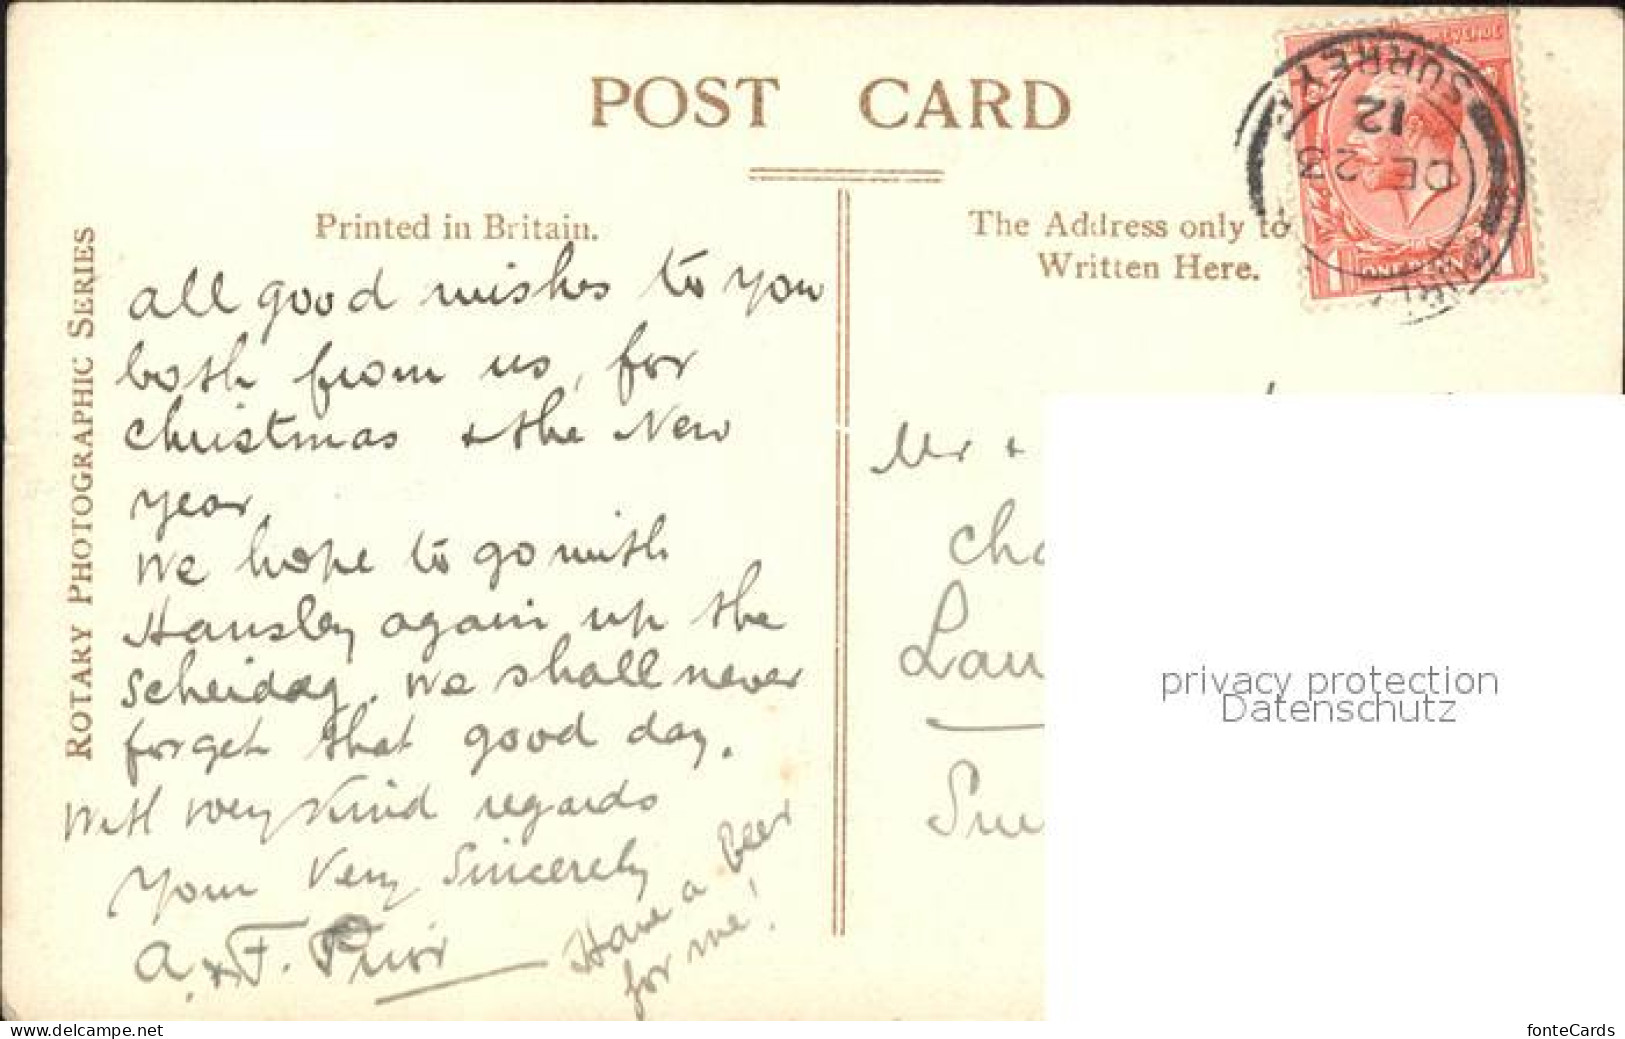 POST CARD
Printed in Britain.
The Address only to
Written Here.
ROTARY PHOTOGRAPHIC SERIES
SURREY
12
DE 23
all good wishes to you
both from us, for
Christmas & the New
year.
We hope to go with
again up the
Scheidag. We shall never
forget that good day.
With very kind regards
Your Very Sincerely
A. & F. Prior
Have a Beer
for me!
Mr &
privacy protection
Datenschutz
www.delcampe.net
fonteCards